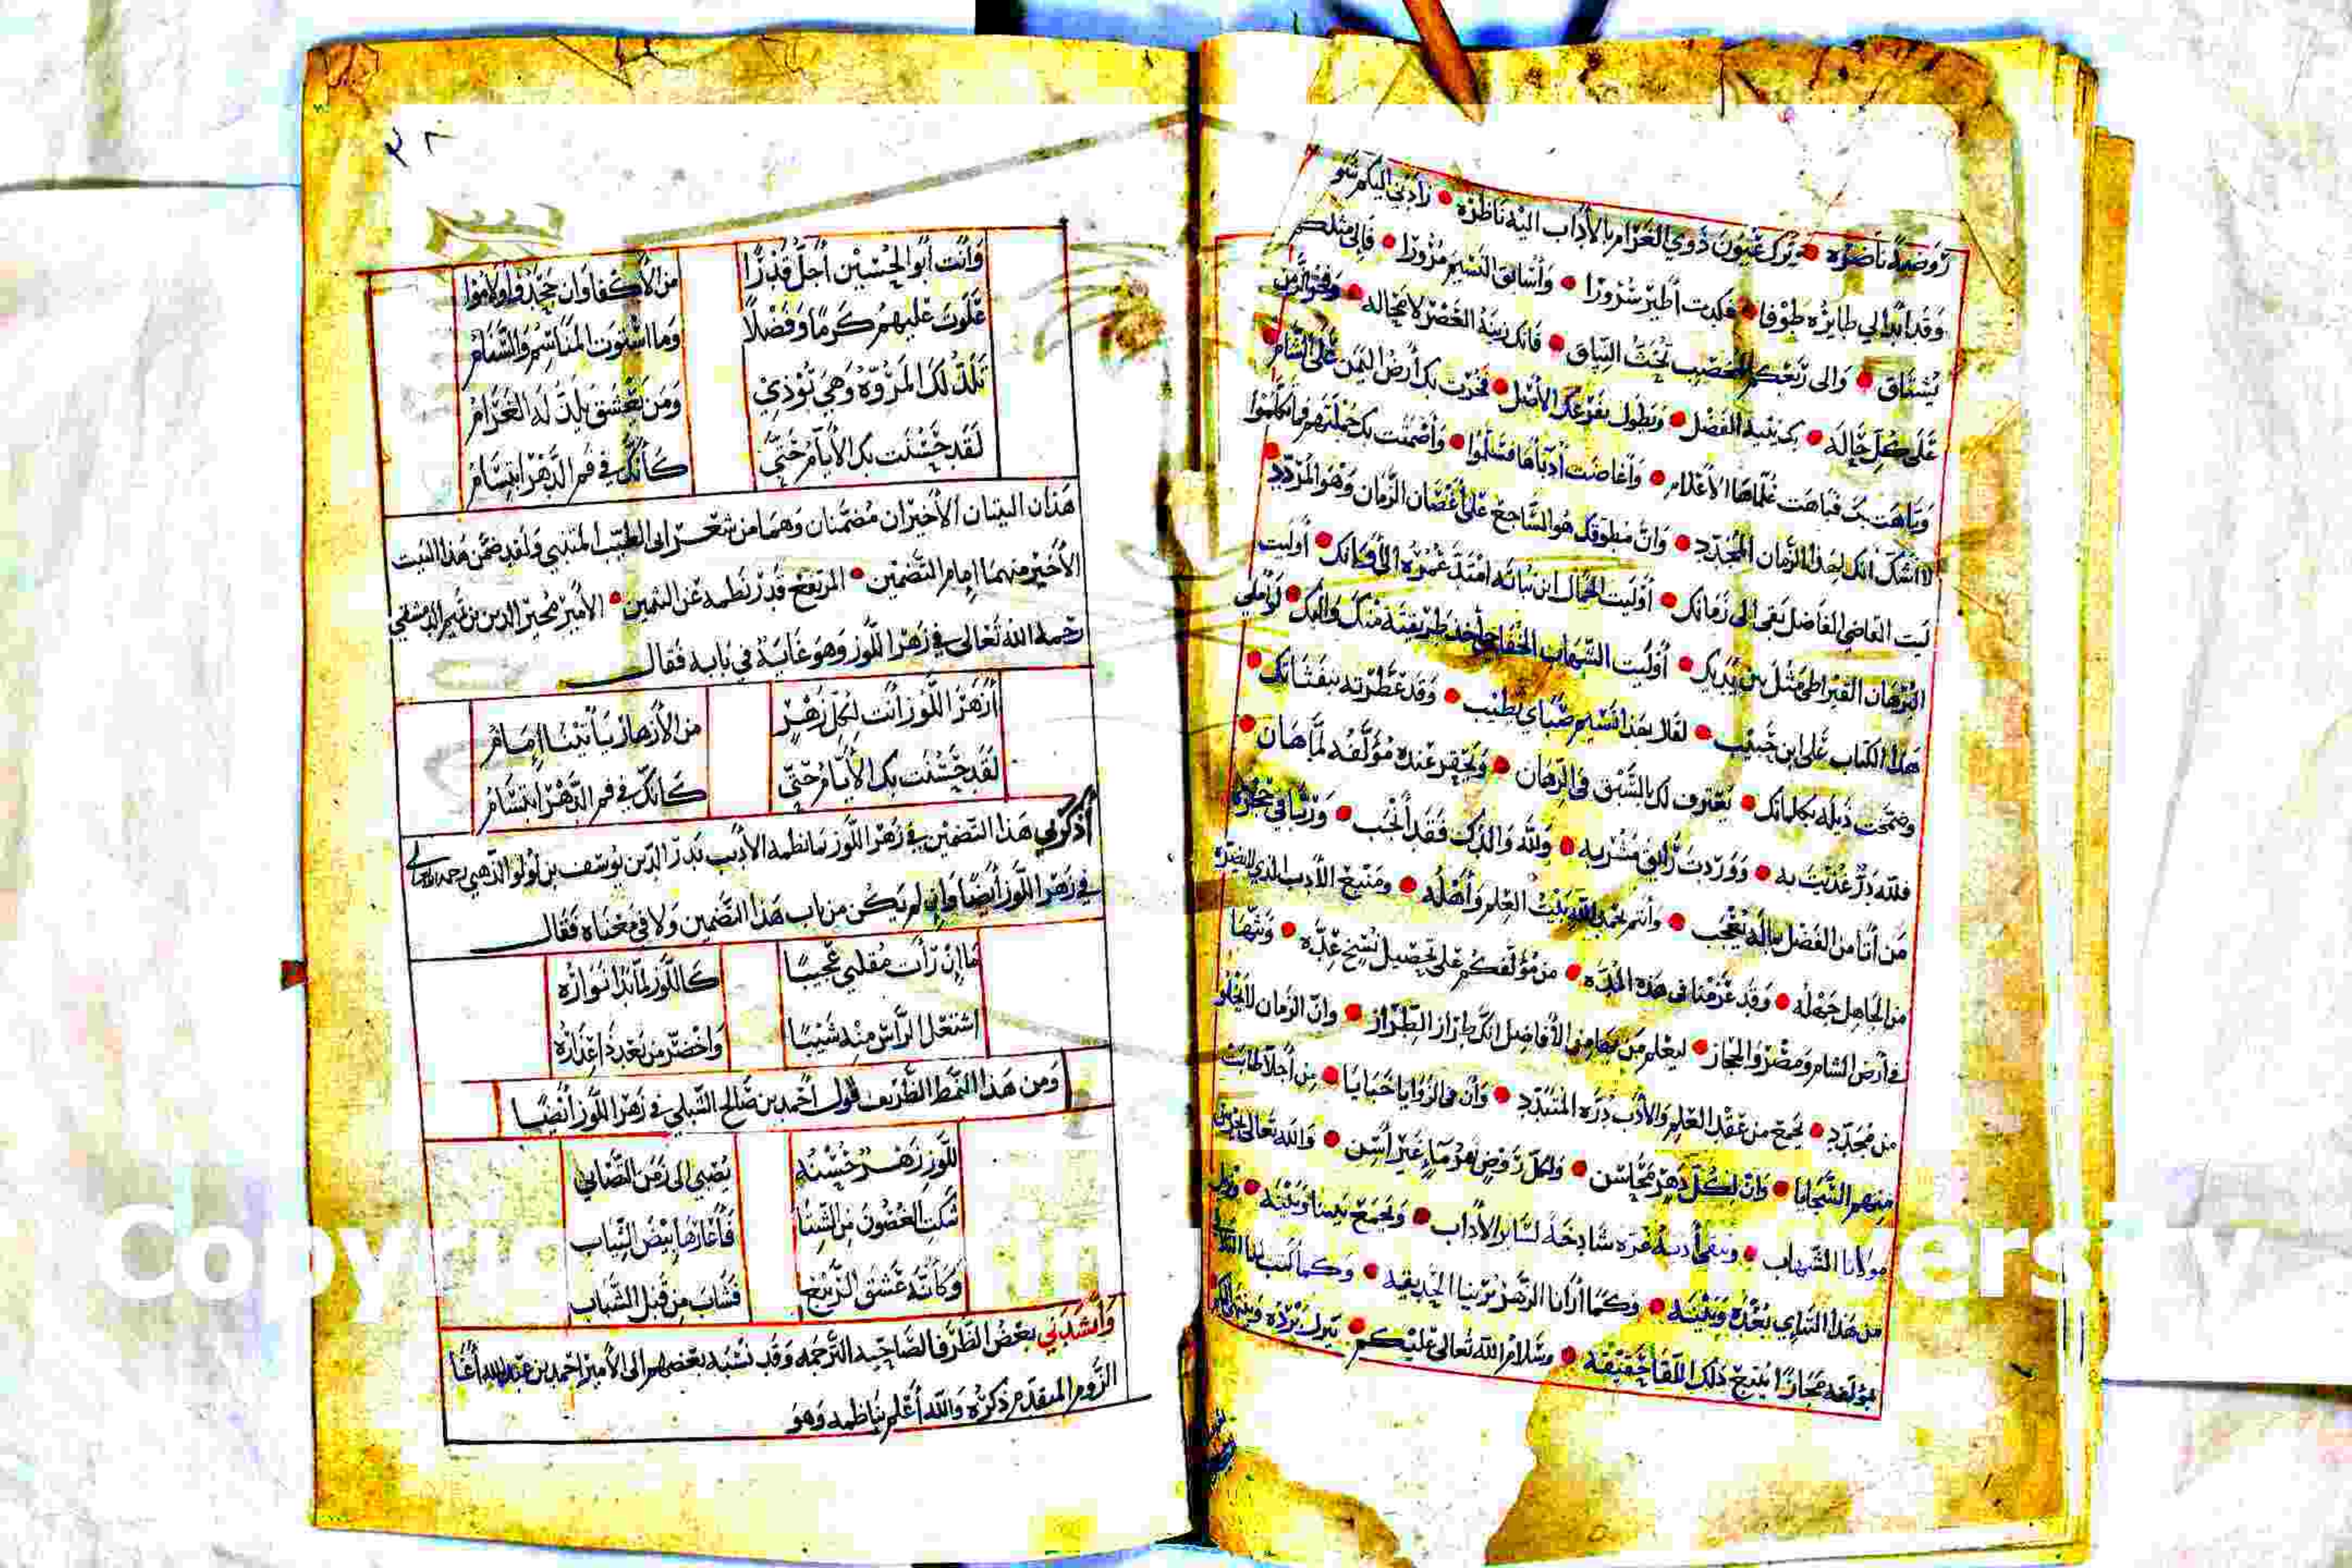 روضة ناضره • يترك عيون ذوي الغرام بالآداب اليه ناظره • زادني اليكم شو
وقد ابدا لي طايره طوفا • فكدت أطير سرورا • وأسابق النسيم مزورا • فإلى مثلكم
يشتاق • والى ربعكم الخصيب تحث النياق • فانك زينة العصر لا محاله •
على كل حاله • بك يتيه الفضل • ويطول بفرعك الأصل • فخرت بك أرض اليمن على الشام
وباهت بك فباهت علماها الاعلام • وأغاضت أدباها فسلموا • وأضمنت بك جملتهم فما تكلموا
لا أشك انك لهذا الزمان المجدد • وان مطوقك هو الساجع على أغصان الزمان وهو المردد
ليت القاضي الفاضل بقى الى زمانك • أوليت الجمال ابن نباته امتد عمره الى أوانك • أوليت
البرهان القيراطي مثل بين يديك • أوليت الشهاب الخفاجي أخذ طريقته منك واليك • لو أملي
هذا الكتاب على ابن حبيب • لقال هذا نسيم صباي يطيب • وقد عطرته بنفثاتك •
وضمخت ذيله بكلماتك • يعترف لك بالسبق في الرهان • ويحقر عنده مؤلفه لما هان •
فلله در غذيت به • ووردت رايق مشربه • ولله والدك فقد أنجب • وربا في حجره
من أتا من الفضل بما له يعجب • وأنتم بحمد الله بيت العلم وأهله • ومنبع الأدب الذي لا يضره
من الجاهل جهله • وقد عزمنا في هذه المده • من مؤلفكم على تحصيل نسخ عده • وبثها
في أرض الشام ومصر والحجاز • ليعلم من بها من الأفاضل انك طراز الطراز • وان الزمان لا يخلو
من مجدد • يجمع من عقد العلم والأدب دره المتبدد • وأن في الزوايا خبايا • من أجلا طابت
منهم السجايا • وان لكل دهر محاسن • ولكل روض نهر ماء غير آسن • والله تعالى يحرس
مولانا الشهاب • ويبقى أدبه غره شادخة لساير الآداب • ويجمع بيننا وبينه • ويزيل
من هذا التنائي بعده وبينه • وكما أرانا الزهر بربنا الحديقيه • وكما كتب لنا التلاقي
بمؤلفه مجازا يتبع ذلك اللقا حقيقة • وسلام الله تعالى عليكم •
٣٨
وأنت أبو الحسين أجل قدرا من الأكفا وان جحدوا ولاموا
علوت عليهم كرما وفضلا وما استوت المناسم والسنام
تلذ لك المروة وهي توذي ومن يعشق يلذ له الغرام
لقد حسنت بك الأيام حتى كأنك في فم الدهر ابتسام
هذان البيتان الأخيران مضمنان وهما من شعر ابى الطيب المتنبي ولقد ضمن هذا البيت
الأخير منهما إمام التضمين • المرتفع قدر نظمه عن الثمين • الأمير مجير الدين بن تميم الدمشقي
رحمه الله تعالى في زهر اللوز وهو غاية في بابه فقال
أزهر اللوز أنت لكل زهر من الأزهار يأتينا إمام
لقد حسنت بك الأيام حتى كانك في فم الدهر ابتسام
أذكرني هذا التضمين في زهر اللوز ما نظمه الأديب بدر الدين يوسف بن لولو الذهبي رحمه الله تعالى
في زهر اللوز أيضا وان لم يكن من باب هذا التضمين ولا في معناه فقال
ما إن رأت مقلتي عجيبا كاللوز لما بدا نواره
اشتعل الراس منه شيبا واخضر من بعد ذا عذاره
ومن هذا النمط الظريف قول أحمد بن صالح السبلي في زهر اللوز أيضا
للوز زهر حسنه يصبي الى زمن التصابي
شكت الغصون من الشتا فأعارها بيض الثياب
وكأنه عشق الربيع فشاب من قبل الشباب
وأنشدني بعض الظرفا لصاحب الترجمه وقد نسبه بعضهم الى الأمير احمد بن عبدالله أغا
الروم المتقدم ذكره والله أعلم بناظمه وهو